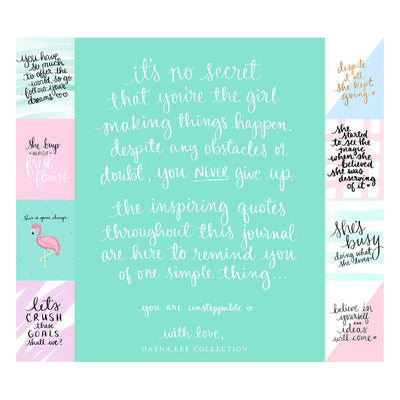 you have
so much
to offer the
world, so go
follow your
dreams
she buys
herself
fresh
flowers
let's
CRUSH
these
GOALS
shall we?
it's no secret
that you're the girl
making things happen.
despite any obstacles or
doubt, you NEVER give up.
the inspiring quotes
throughout this journal
are here to remind you
of one simple thing...
you are unstoppable
with love,
DAYNA LEE COLLECTION
despite
it all,
she kept
going
she
started
to see the
magic
when she
believed
she was
deserving
of it
she's
busy
doing what
she loves
believe in
yourself
and
ideas
will come